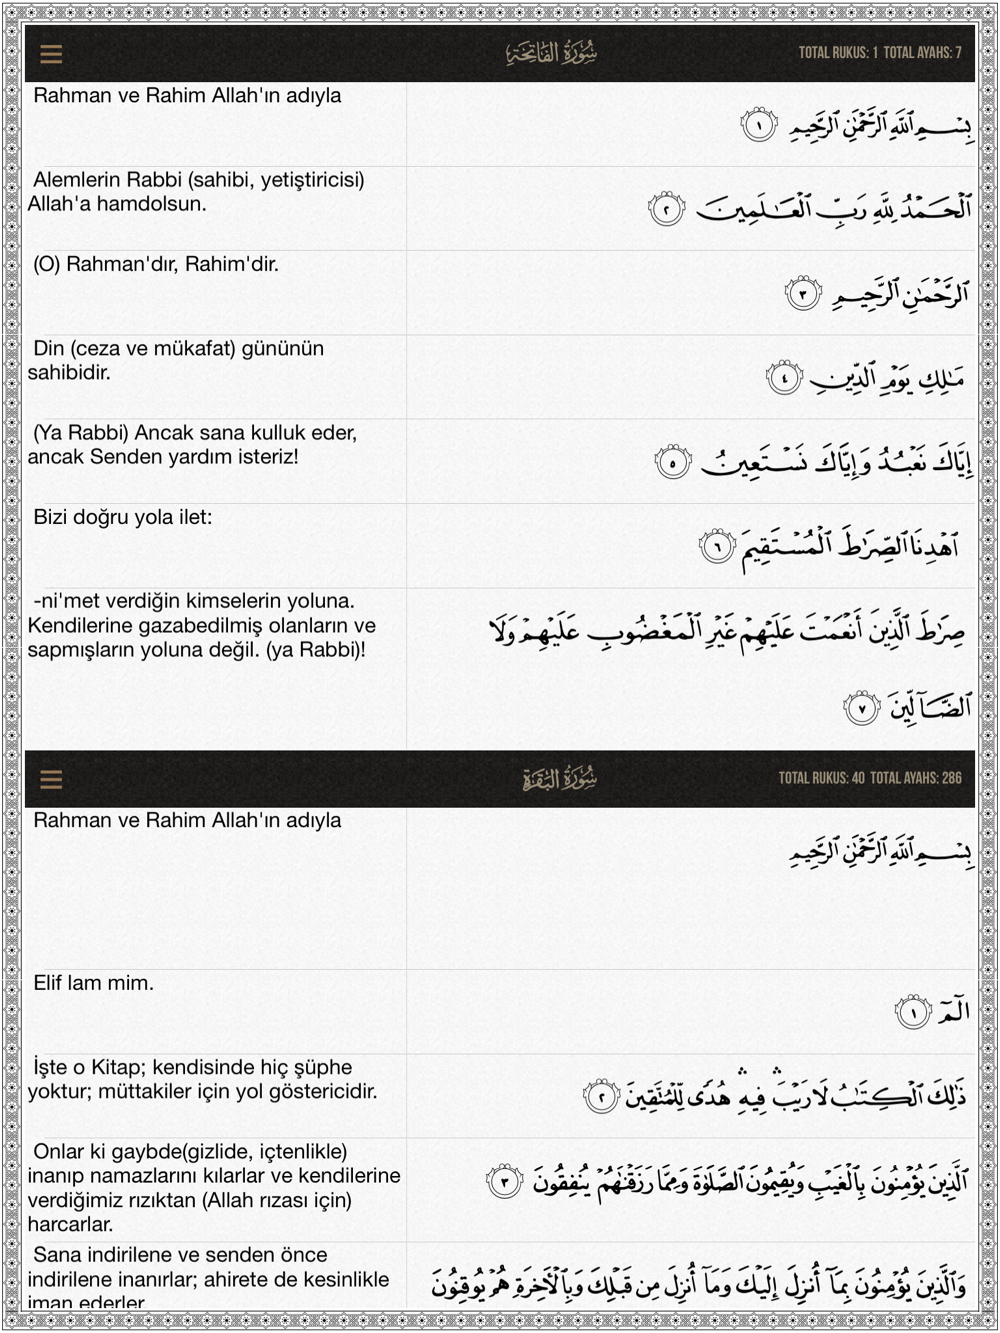 سُورَةُ الفَاتِحَةِ
TOTAL RUKUS: 1 TOTAL AYAHS: 7
Rahman ve Rahim Allah'ın adıyla
بِسْمِ ٱللَّهِ ٱلرَّحْمَٰنِ ٱلرَّحِيمِ ١
Alemlerin Rabbi (sahibi, yetiştiricisi)
Allah'a hamdolsun.
ٱلْحَمْدُ لِلَّهِ رَبِّ ٱلْعَـٰلَمِينَ ٢
(O) Rahman'dır, Rahim'dir.
ٱلرَّحْمَٰنِ ٱلرَّحِيمِ ٣
Din (ceza ve mükafat) gününün
sahibidir.
مَـٰلِكِ يَوْمِ ٱلدِّينِ ٤
(Ya Rabbi) Ancak sana kulluk eder,
ancak Senden yardım isteriz!
إِيَّاكَ نَعْبُدُ وَإِيَّاكَ نَسْتَعِينُ ٥
Bizi doğru yola ilet:
ٱهْدِنَا ٱلصِّرَٰطَ ٱلْمُسْتَقِيمَ ٦
-ni'met verdiğin kimselerin yoluna.
Kendilerine gazabedilmiş olanların ve
sapmışların yoluna değil. (ya Rabbi)!
صِرَٰطَ ٱلَّذِينَ أَنْعَمْتَ عَلَيْهِمْ غَيْرِ ٱلْمَغْضُوبِ عَلَيْهِمْ وَلَا
ٱلضَّآلِّينَ ٧
سُورَةُ البَقَرَةِ
TOTAL RUKUS: 40 TOTAL AYAHS: 286
Rahman ve Rahim Allah'ın adıyla
بِسْمِ ٱللَّهِ ٱلرَّحْمَٰنِ ٱلرَّحِيمِ
Elif lam mim.
الٓمٓ ١
İşte o Kitap; kendisinde hiç şüphe
yoktur; müttakiler için yol göstericidir.
ذَٰلِكَ ٱلْكِتَـٰبُ لَا رَيْبَ ۛ فِيهِ ۛ هُدًى لِّلْمُتَّقِينَ ٢
Onlar ki gaybde(gizlide, içtenlikle)
inanıp namazlarını kılarlar ve kendilerine
verdiğimiz rızıktan (Allah rızası için)
harcarlar.
ٱلَّذِينَ يُؤْمِنُونَ بِٱلْغَيْبِ وَيُقِيمُونَ ٱلصَّلَوٰةَ وَمِمَّا رَزَقْنَـٰهُمْ يُنفِقُونَ ٣
Sana indirilene ve senden önce
indirilene inanırlar; ahirete de kesinlikle
iman ederler.
وَٱلَّذِينَ يُؤْمِنُونَ بِمَآ أُنزِلَ إِلَيْكَ وَمَآ أُنزِلَ مِن قَبْلِكَ وَبِٱلْـَٔاخِرَةِ هُمْ يُوقِنُونَ